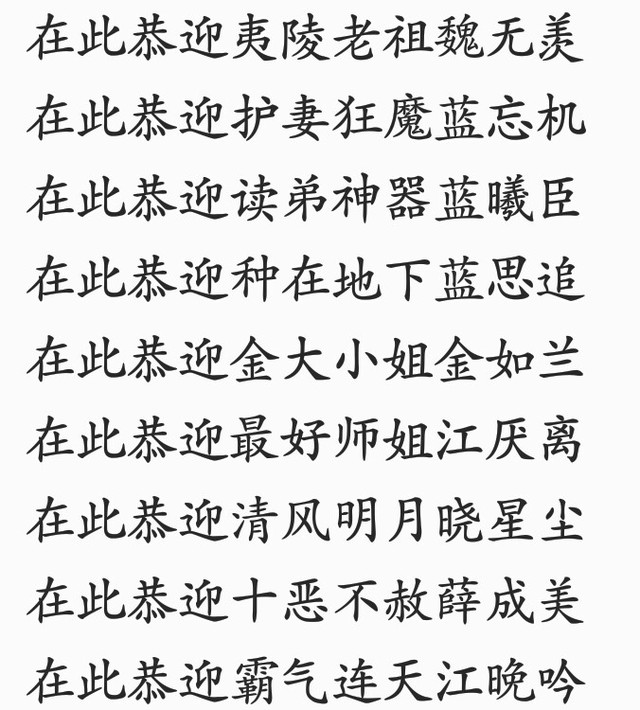 在此恭迎夷陵老祖魏无羡
在此恭迎护妻狂魔蓝忘机
在此恭迎读弟神器蓝曦臣
在此恭迎种在地下蓝思追
在此恭迎金大小姐金如兰
在此恭迎最好师姐江厌离
在此恭迎清风明月晓星尘
在此恭迎十恶不赦薛成美
在此恭迎霸气连天江晚吟